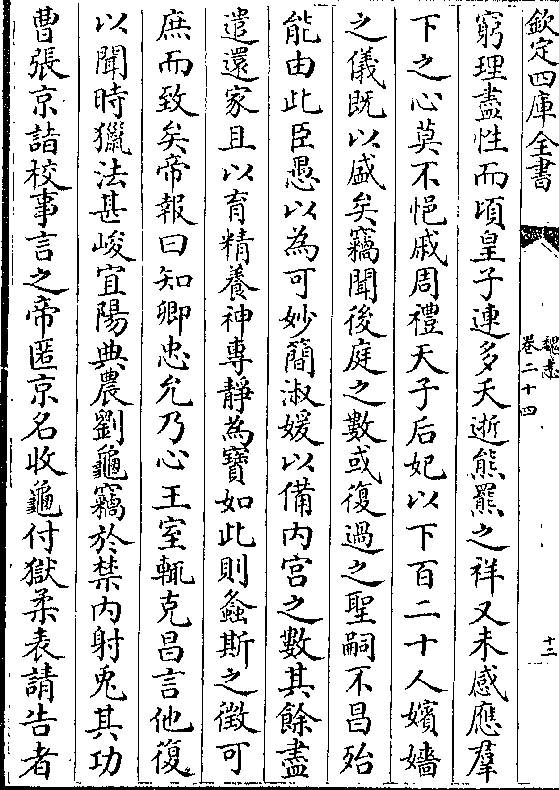 欽定四庫全書
魏志
卷二十四
十三
窮理盡性而頃皇子連多夭逝熊羆之祥又未感應羣
下之心莫不悒戚周禮天子后妃以下百二十人嬪嬙
之儀既以盛矣竊聞後庭之數或復過之聖嗣不昌殆
能由此臣愚以為可妙簡淑媛以備内宫之數其餘盡
遣還家且以育精養神專靜為寶如此則螽斯之徵可
庶而致矣帝報曰知卿忠允乃心王室輒克昌言他復
以聞時獵法甚峻宜陽典農劉龜竊於禁内射兎其功
曹張京詣校事言之帝匿京名收龜付獄柔表請告者